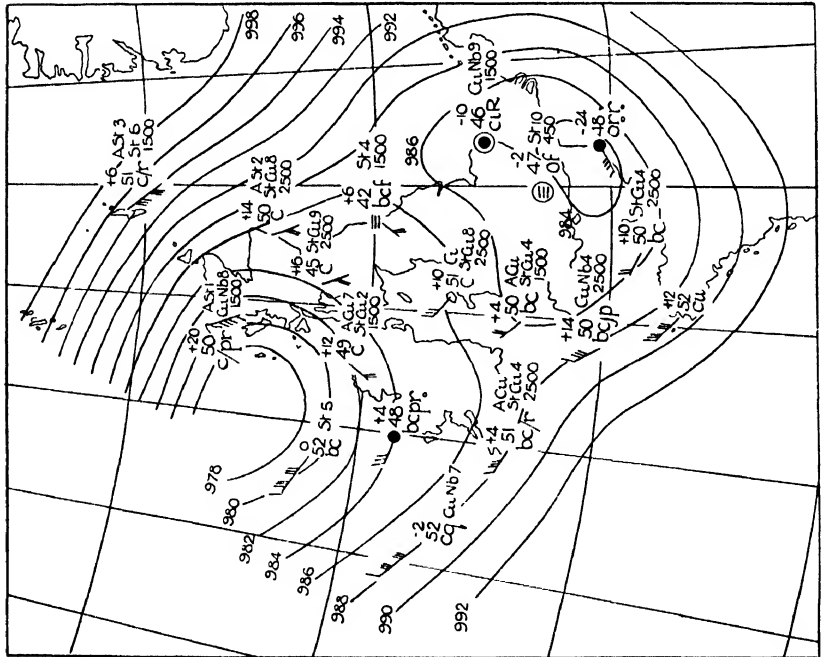 998
996
994
992
+6 ASt3
51 St 6
c/r 1500
ASt2
+14 StCu8
50 2500
C
+6 St4
42 1500
bcf
986
CuNb9
1500
-10
46
ciR
-2 St10
47 450
of
-24
48
orr
984
+10 StCu4
50 2500
bc
+16 StCu9
45 2500
C
+20 ASt1
50 CuNb8
c/pr 1500
+12 ACu7
49 StCu2
C 1500
+10 Ci
51 StCu8
C 2500
+4 ACu
50 StCu4
bc 1500
+14 CuNb4
50 2500
bcjp
+12
52
cu
St5
52
bc
+4
48
bcpr
+4 ACu
51 StCu4
bc/r 2500
-2 CuNb7
52
cq
978
980
982
984
986
988
990
992